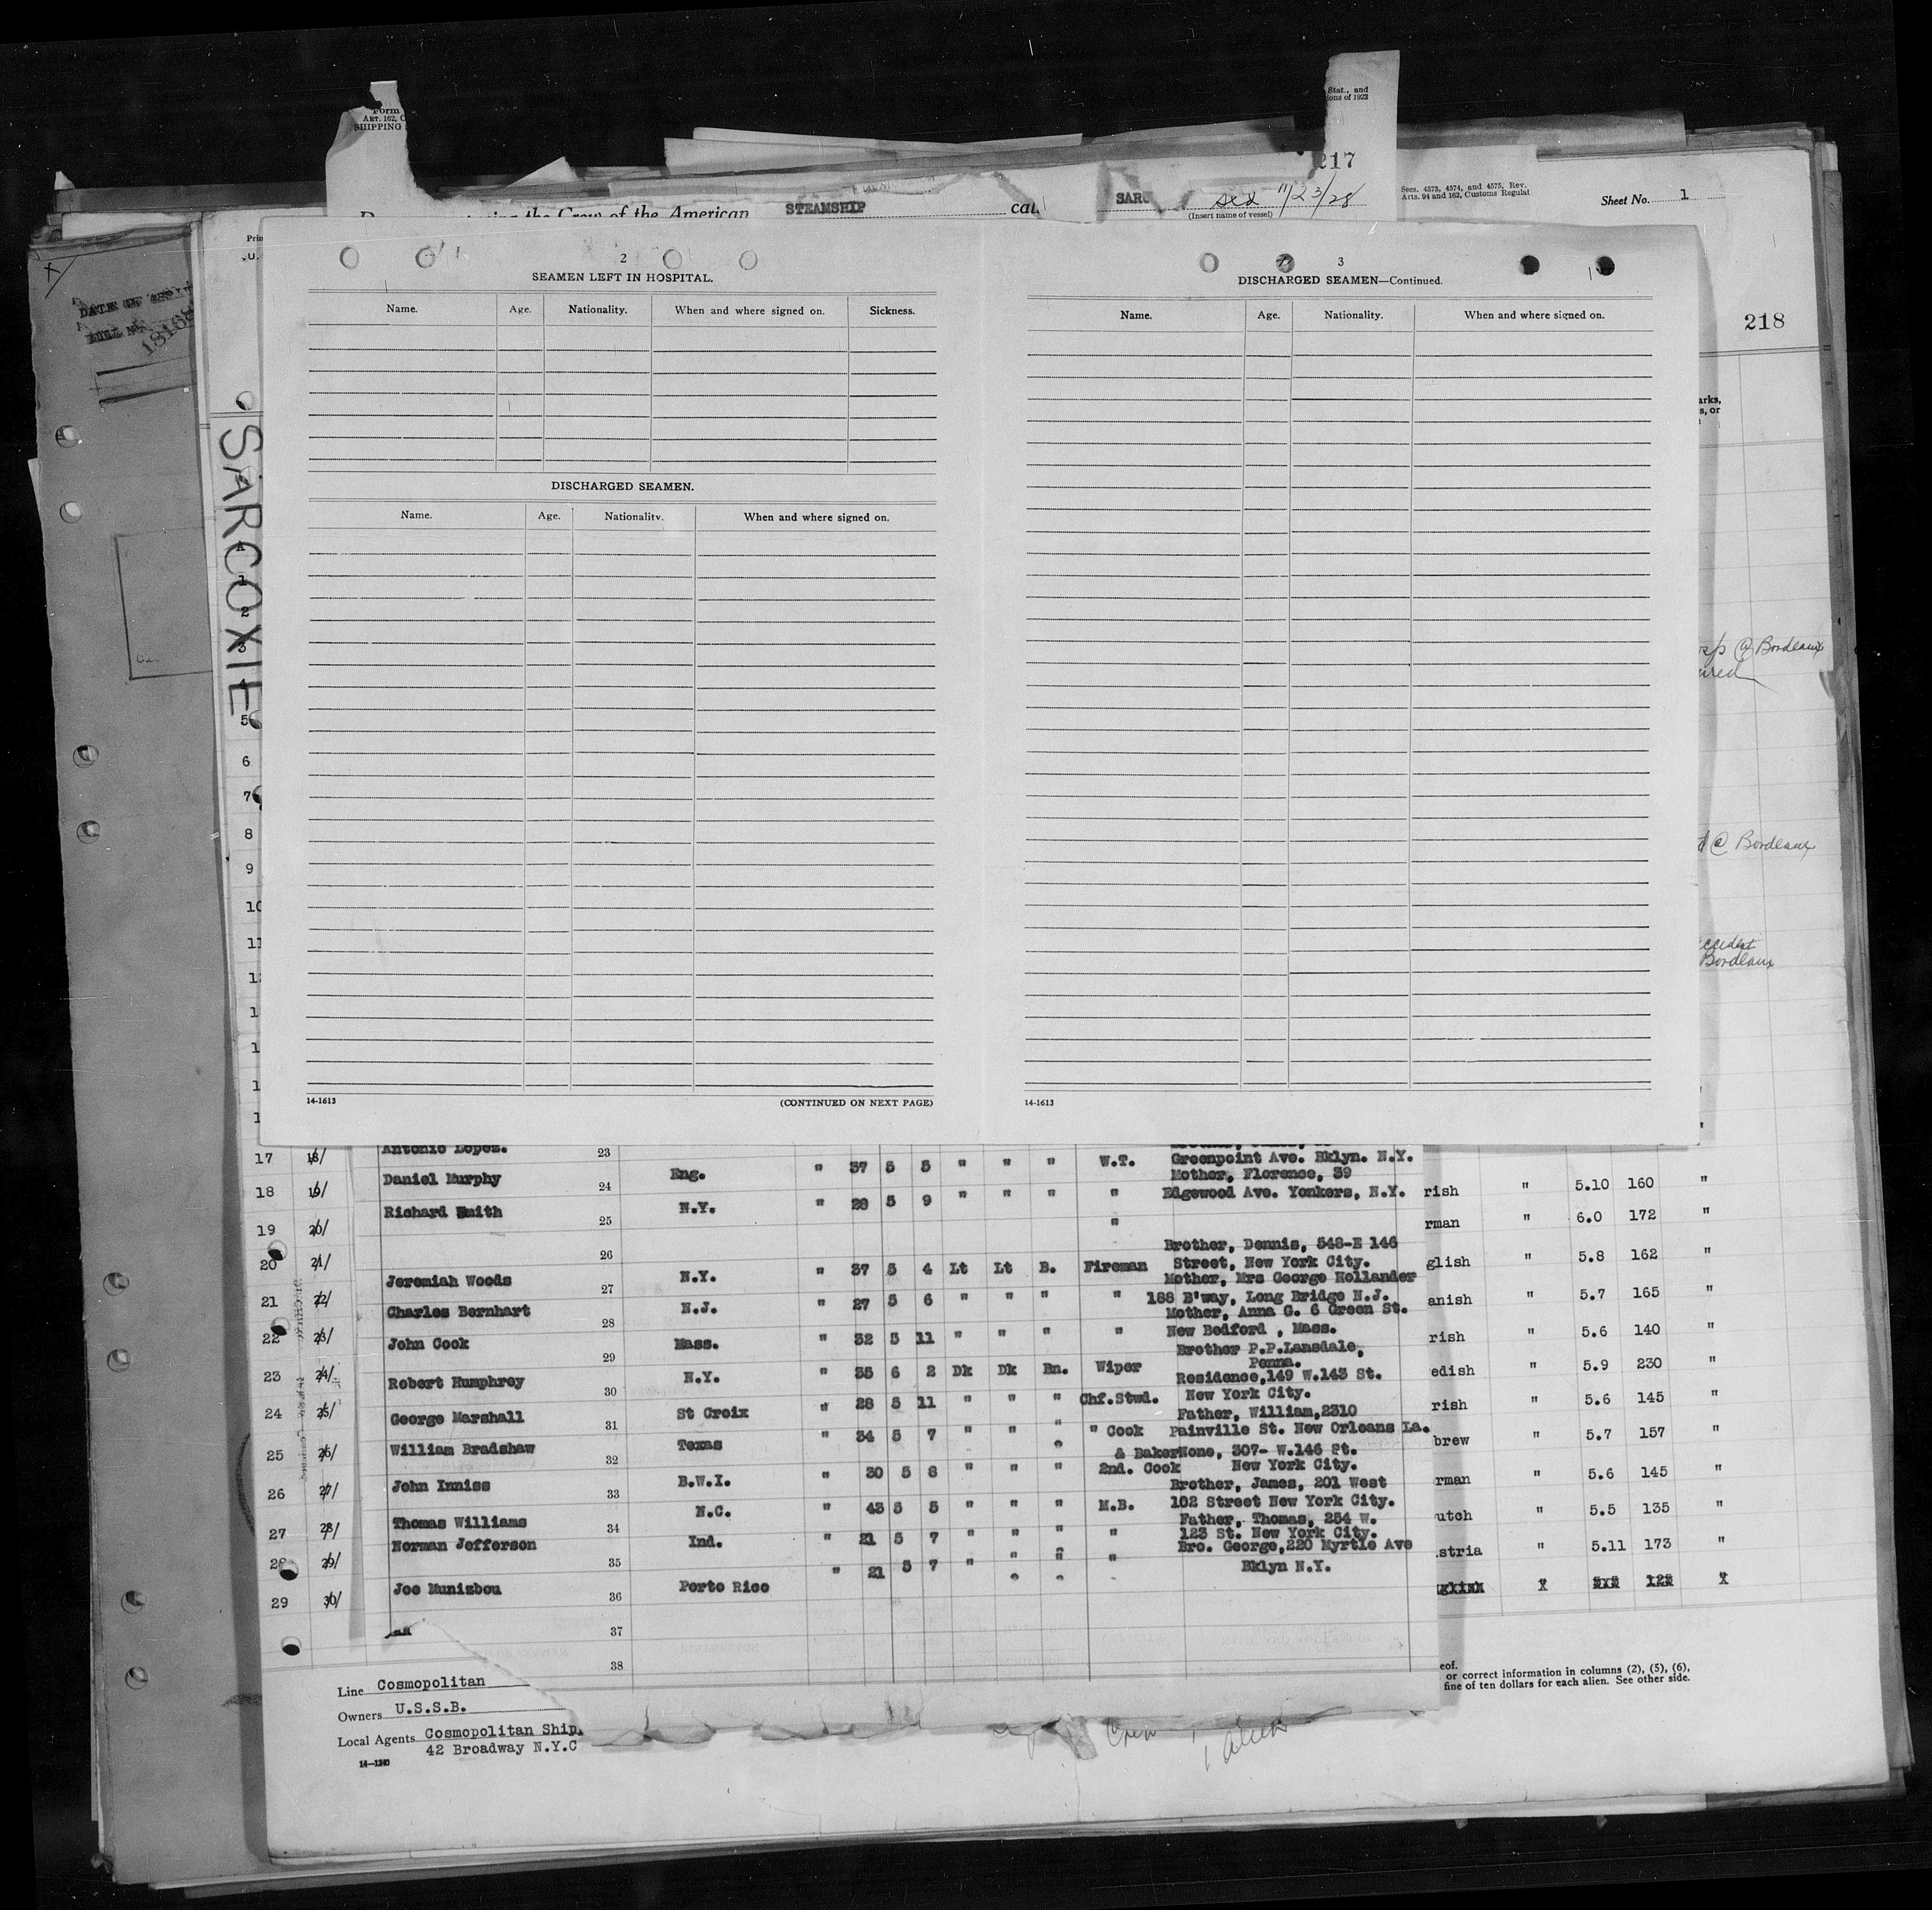 Form
ART. 162, C
SHIPPING
Stat., and
ions of 1923
217
the Crew of the American STEAMSHIP cal. SARC 11/23/28
(Insert name of vessel)
Secs. 4573, 4574, and 4575, Rev.
Arts. 94 and 162, Customs Regulat
Sheet No. 1
218
SARCOXIE
DATE OF
18168
2
SEAMEN LEFT IN HOSPITAL.
Name. Age. Nationality. When and where signed on. Sickness.
DISCHARGED SEAMEN.
Name. Age. Nationality. When and where signed on.
14-1613 (CONTINUED ON NEXT PAGE)
3
DISCHARGED SEAMEN—Continued.
Name. Age. Nationality. When and where signed on.
14-1613
arks,
s, or
@ Bordeaux
@ Bordeaux
Bordeaux
A
1
2
3
4
5
6
7
8
9
10
11
17 18/ Antonio Lopez. 23
Greenpoint Ave. Bklyn. N.Y.
Daniel Murphy 24 Eng. " 37 5 5 " " " W.T. Mother, Florence, 39
18 19/ Edgewood Ave. Yonkers, N.Y. rish " 5.10 160 "
Richard Smith 25 N.Y. " 28 5 9 " " " "
19 20/ " rman " 6.0 172 "
26 Brother, Dennis, 548-E 146
20 21/ Street, New York City. glish " 5.8 162 "
Jeremiah Woods 27 N.Y. " 37 5 4 Lt Lt B. Fireman Mother, Mrs George Hollander
21 22/ 188 B'way, Long Bridge N.J. anish " 5.7 165 "
Charles Bernhart 28 N.J. " 27 5 6 " " " " Mother, Anna G. 6 Green St.
22 23/ New Bedford , Mass. rish " 5.6 140 "
John Cook 29 Mass. " 32 5 11 " " " " Brother P.P.Lansdale,
Penna.
23 24/ edish " 5.9 230 "
Robert Humphrey 30 N.Y. " 35 6 2 Dk Dk Bn. Wiper Residence,149 W.143 St.
24 25/ New York City. rish " 5.6 145 "
George Marshall 31 St Croix " 28 5 11 " " " Chf.Stwd. Father, William,2310
25 26/ Painville St. New Orleans La. brew " 5.7 157 "
William Bradshaw 32 Texas " 34 5 7 " " " " Cook & Baker None, 307- W.146 St.
26 27/ New York City. rman " 5.6 145 "
John Inniss 33 B.W.I. " 30 5 8 " " " 2nd. Cook Brother, James, 201 West
27 28/ 102 Street New York City. utch " 5.5 135 "
Thomas Williams 34 N.C. " 43 5 5 " " " M.B. Father, Thomas, 254 W.
123 St. New York City.
Norman Jefferson 35 Ind. " 21 5 7 " " " " Bro. George,220 Myrtle Ave
28 29/ Bklyn N.Y. stria " 5.11 173 "
Joe Munizbou 36 Porto Rico " 21 5 7 " " " "
29 30/
37
38
Line Cosmopolitan
Owners U.S.S.B.
Local Agents Cosmopolitan Ship.
42 Broadway N.Y.C
14—1240
eof.
or correct information in columns (2), (5), (6),
fine of ten dollars for each alien. See other side.
Crew
1 alien